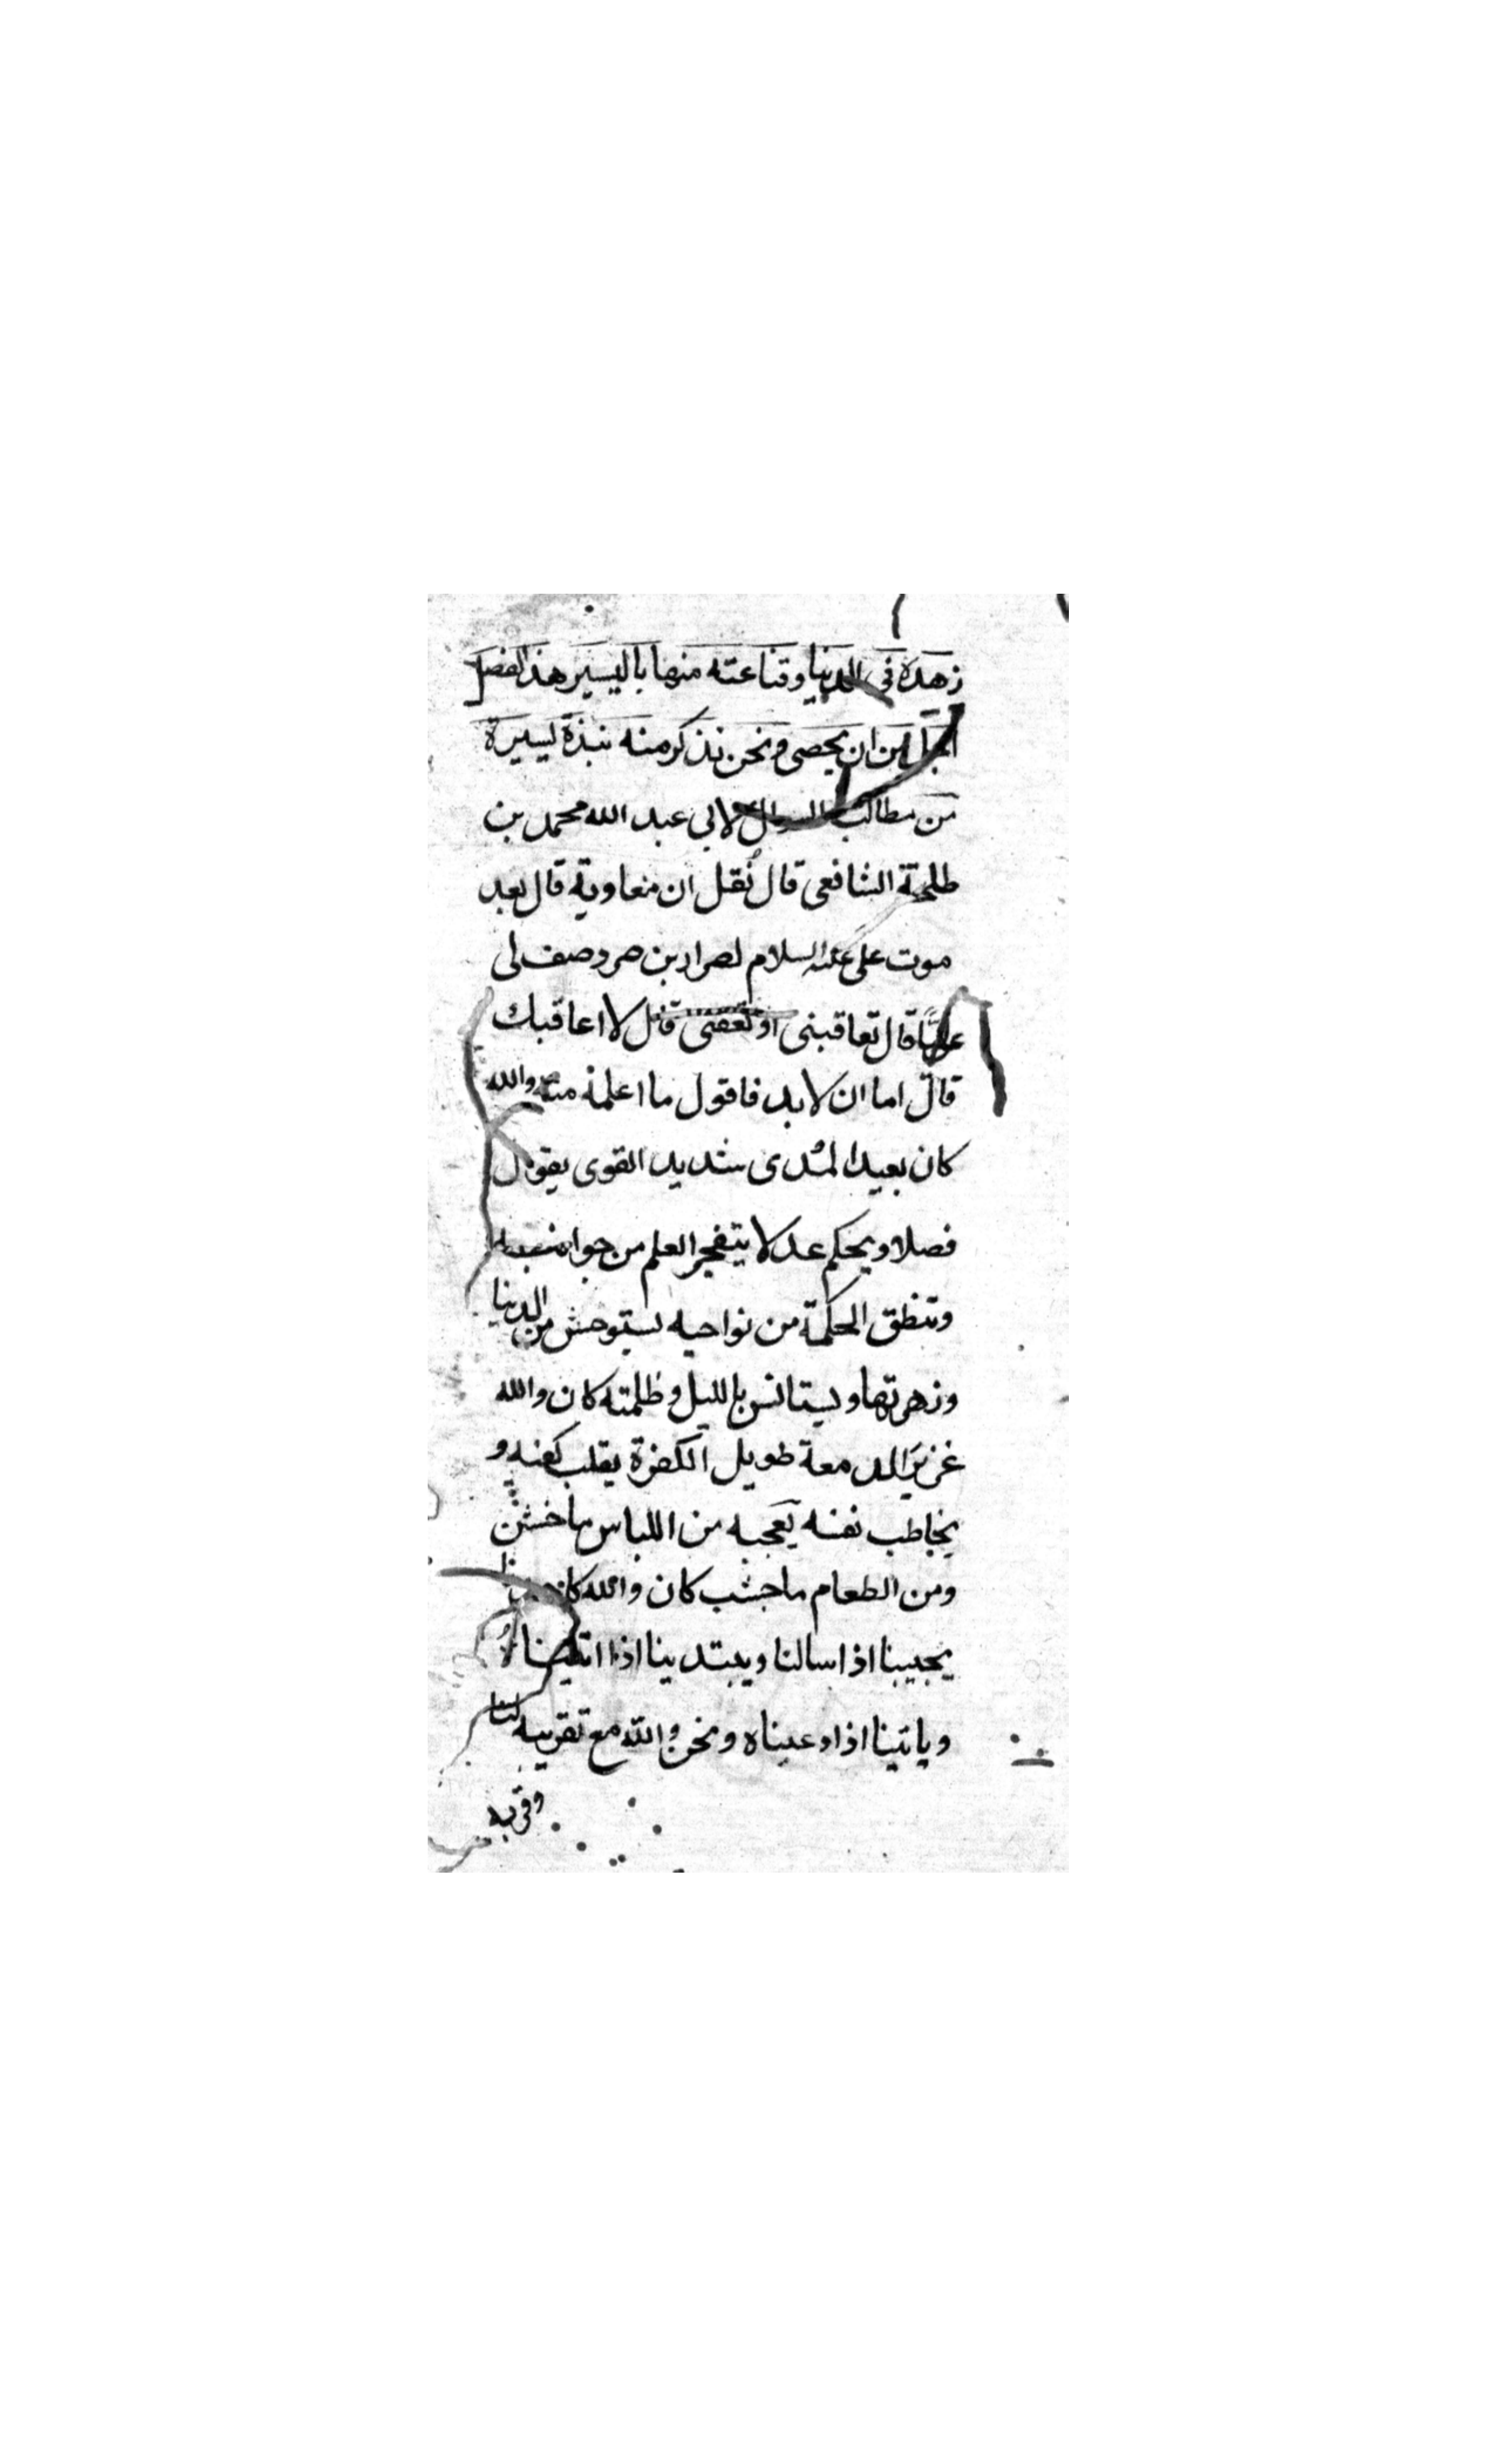 زهده في الدنيا وقناعته منها باليسير هذا الفصل
اجل من ان يحصى ونحن نذكر منه نبذة يسيرة
من مطالب السوال لابي عبد الله محمد بن
طلحة الشافعي قال نُقل ان معاوية قال بعد
موت على عليه السلام لضرار بن ضمر وصف لى
عليًّا قال تعاقبنى او تعفنى قال لا اعاقبك
قال اما ان لابد فاقول ما اعلمه منه والله
كان بعيد المُدى شديد القوى يقول
فصلا ويحكم عدلا يتفجر العلم من جوانبه
وتنطق الحكمة من نواحيه يستوحش من الدنيا
وزهرتها ويستانس بالليل وظلمته كان والله
غزير الدمعة طويل الفكرة يقلب كفيه و
يخاطب نفسه يعجبه من اللباس ما خشن
ومن الطعام ما جشب كان والله كاحدنا
يجيبنا اذا سالنا ويبتدينا اذا اتيناه
وياتينا اذا دعيناه ونحن والله مع تقريبه لنا
وقربه